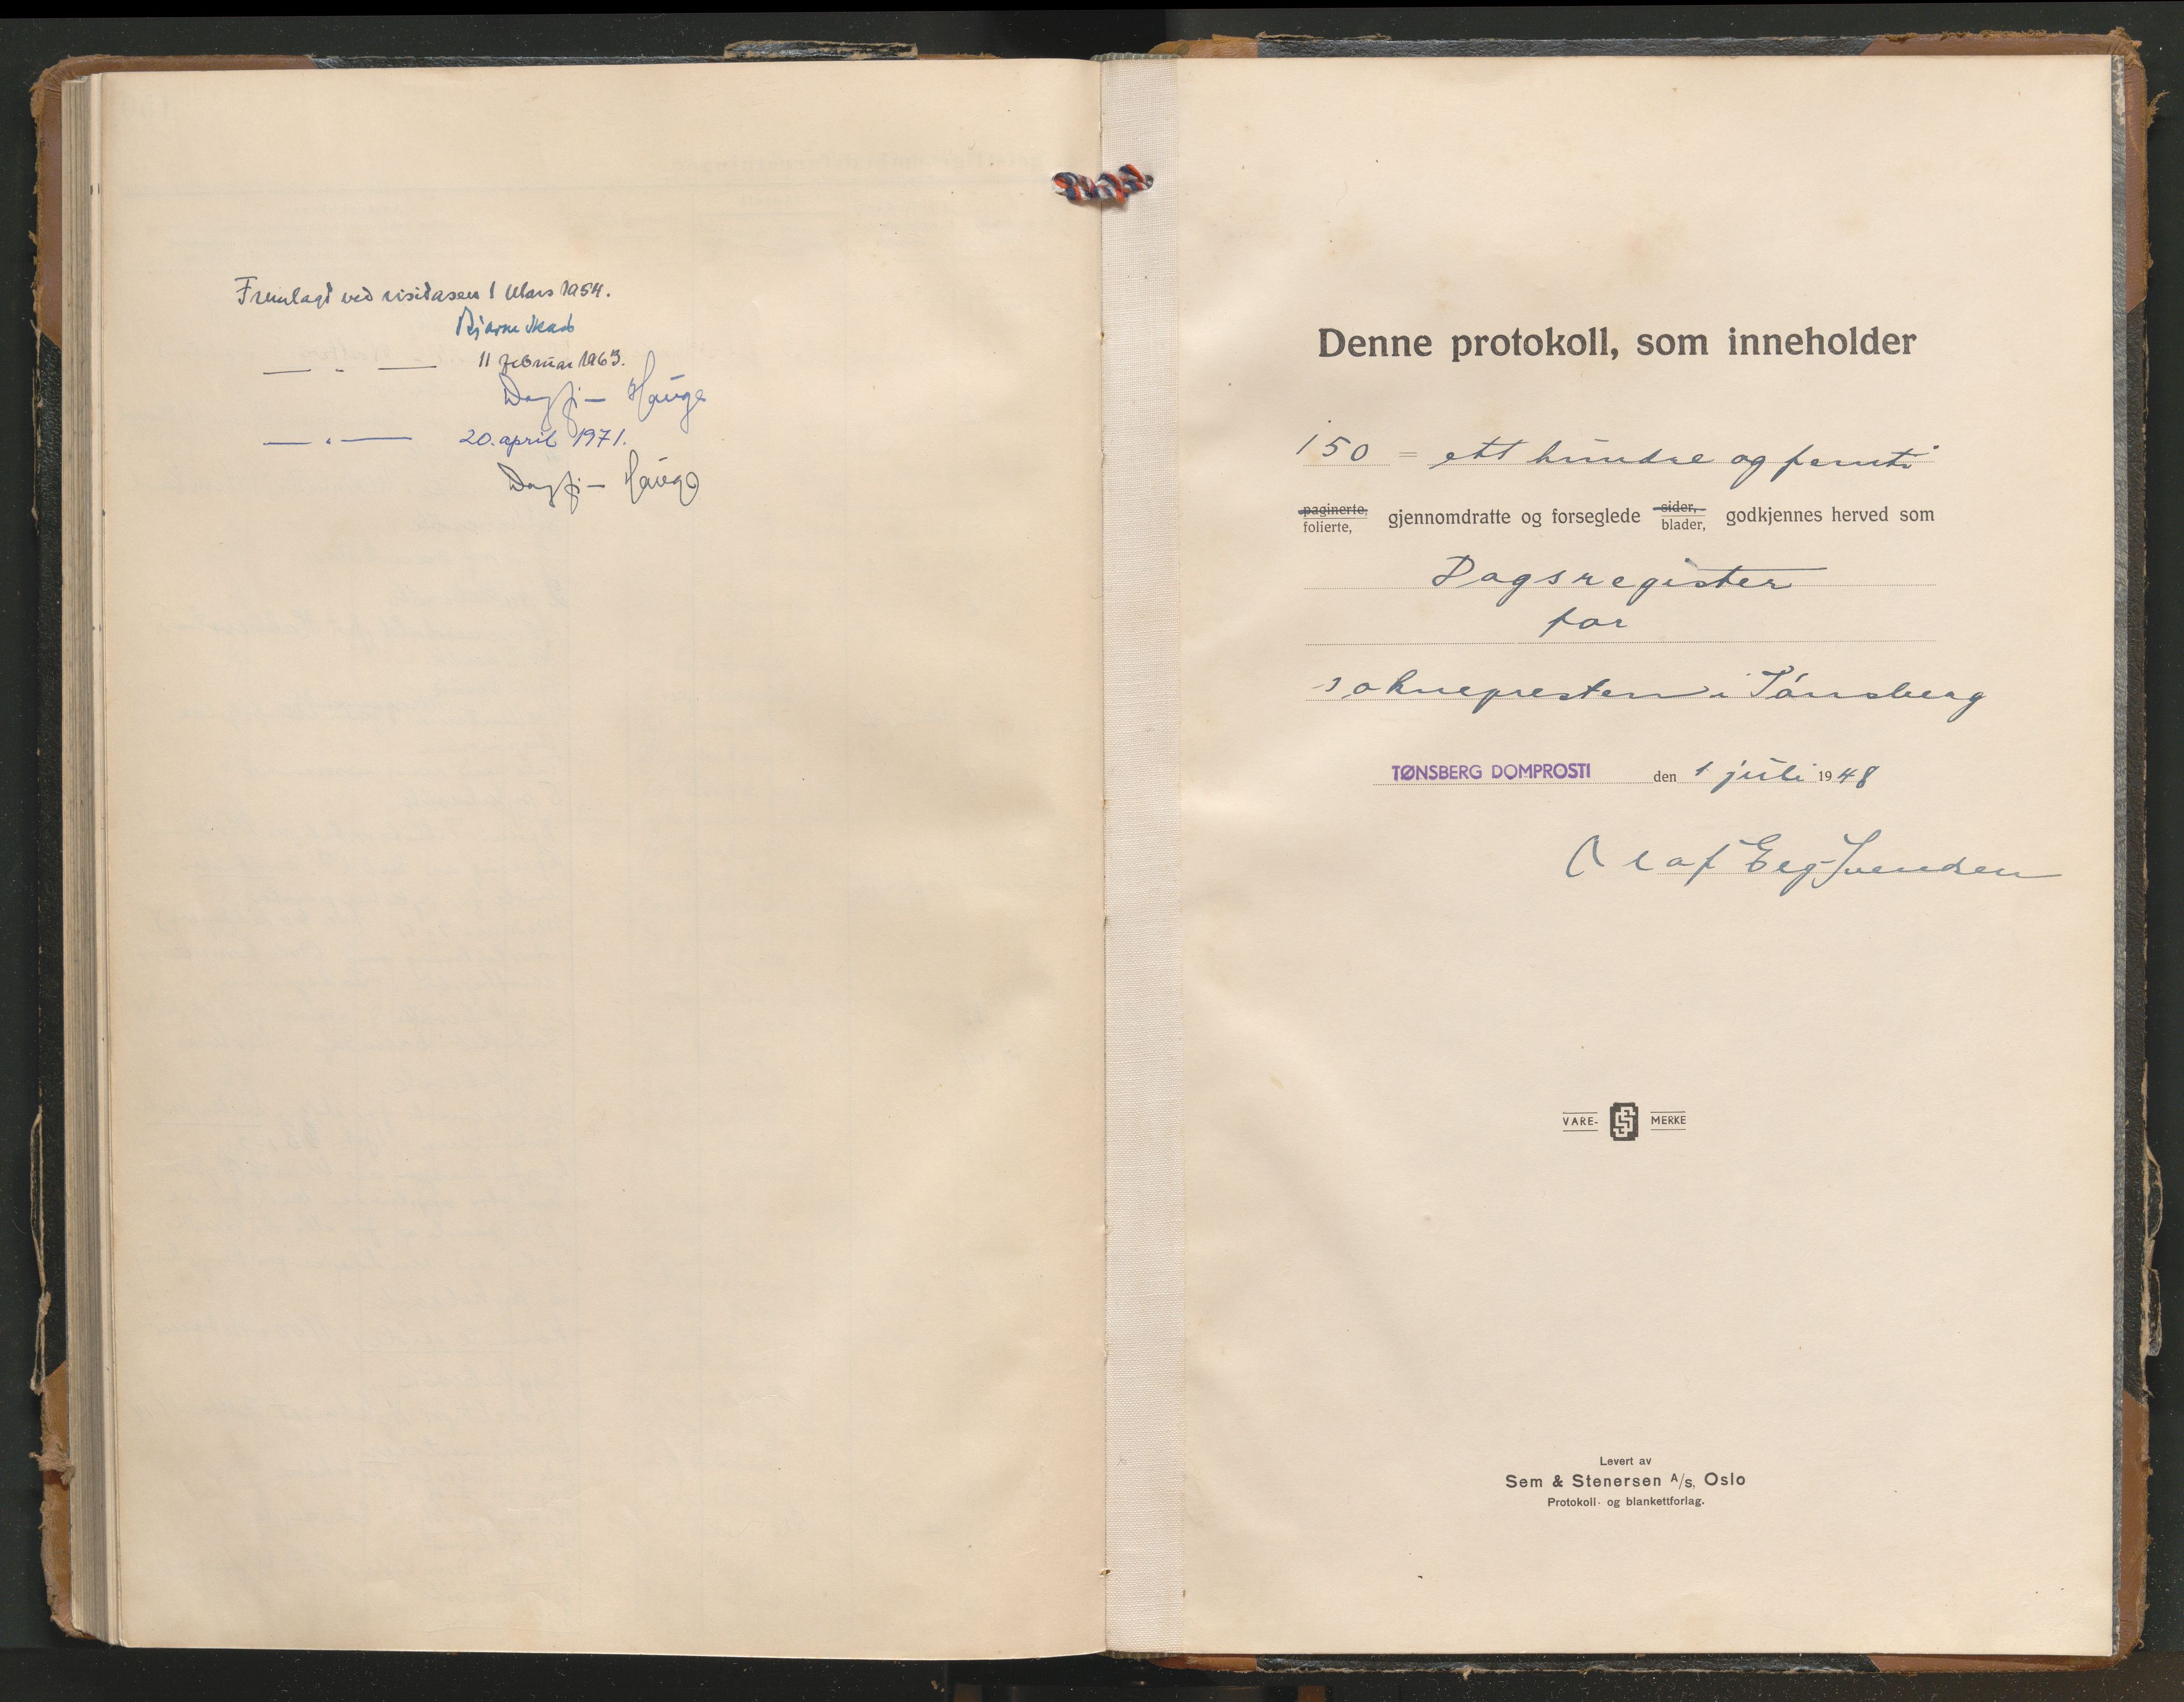 Fremlagt ved visitasen 1 Mars 1954.
Bjarne Skard
— " — 11 februar 1963.
Dagfi— Hauge
— " — 20. april 1971.
Dagfi— Hauge
Denne protokoll, som inneholder
150 = ett hundre og femti
paginerte, folierte, gjennomdratte og forseglede sider, blader, godkjennes herved som
Dagsregister
for
soknepresten i Tønsberg
TØNSBERG DOMPROSTI den 1 juli 1948
Olaf Eeg-Svendsen
VARE- SS MERKE
Levert av
Sem & Stenersen A/s, Oslo
Protokoll- og blankettforlag.